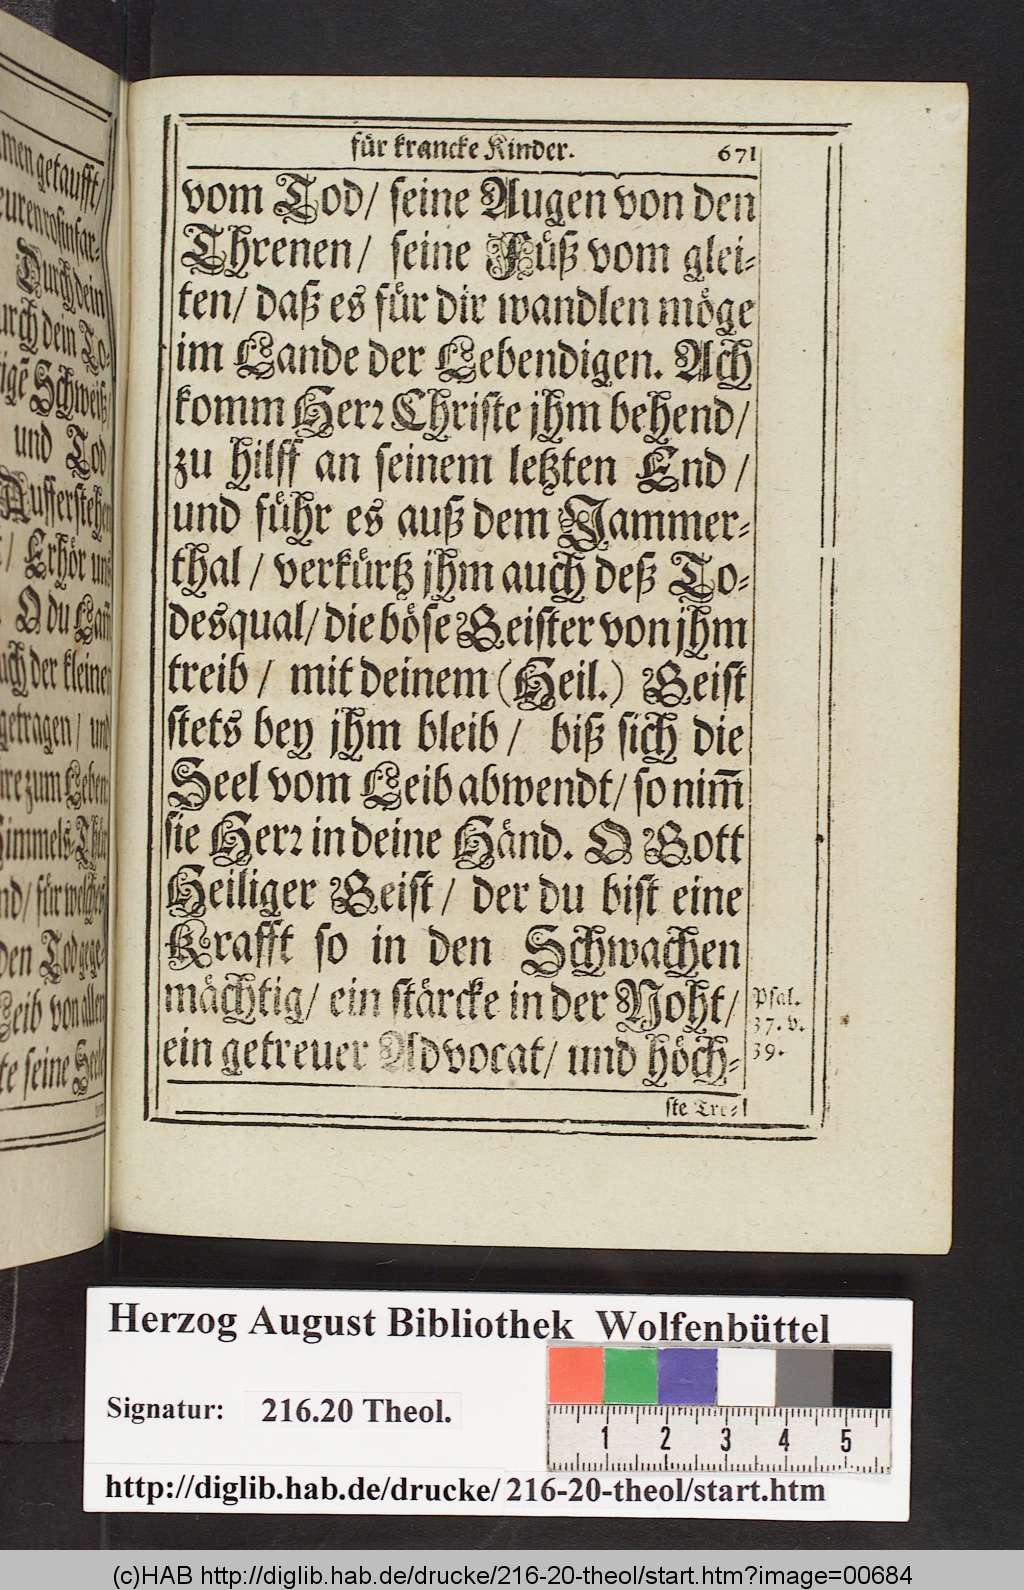 für krancke Kinder. 671
vom Tod/ seine Augen von den
Threnen/ seine Füß vom glei-
ten/ daß es für dir wandlen möge
im Lande der Lebendigen. Ach
komm Herr Christe jhm behend/
zu hilff an seinem letzten End/
und führ es auß dem Jammer-
thal/ verkürtz jhm auch deß To-
desqual/ die böse Geister von jhm
treib/ mit deinem (Heil.) Geist
stets bey jhm bleib/ biß sich die
Seel vom Leib abwendt/ so nim̄
sie Herr in deine Händ. O Gott
Heiliger Geist/ der du bist eine
Krafft so in den Schwachen
mächtig/ ein stärcke in der Noht/
ein getreuer Advocat/ und höch-
ste Trö-
Psal.
37. v.
39.
men getaufft/
Durch dein
urch dein To-
Schweiß/
und Tod
Aufferstehen
/ Erhör uns
O du Lam̄
auch der kleinen
getragen/ und
zum Leben
Himmels-Thür
nd/ für welches
den Tod gege-
Leib von allen
te seine Seele
Herzog August Bibliothek Wolfenbüttel
Signatur: 216.20 Theol.
1 2 3 4 5
http://diglib.hab.de/drucke/216-20-theol/start.htm
(c)HAB http://diglib.hab.de/drucke/216-20-theol/start.htm?image=00684